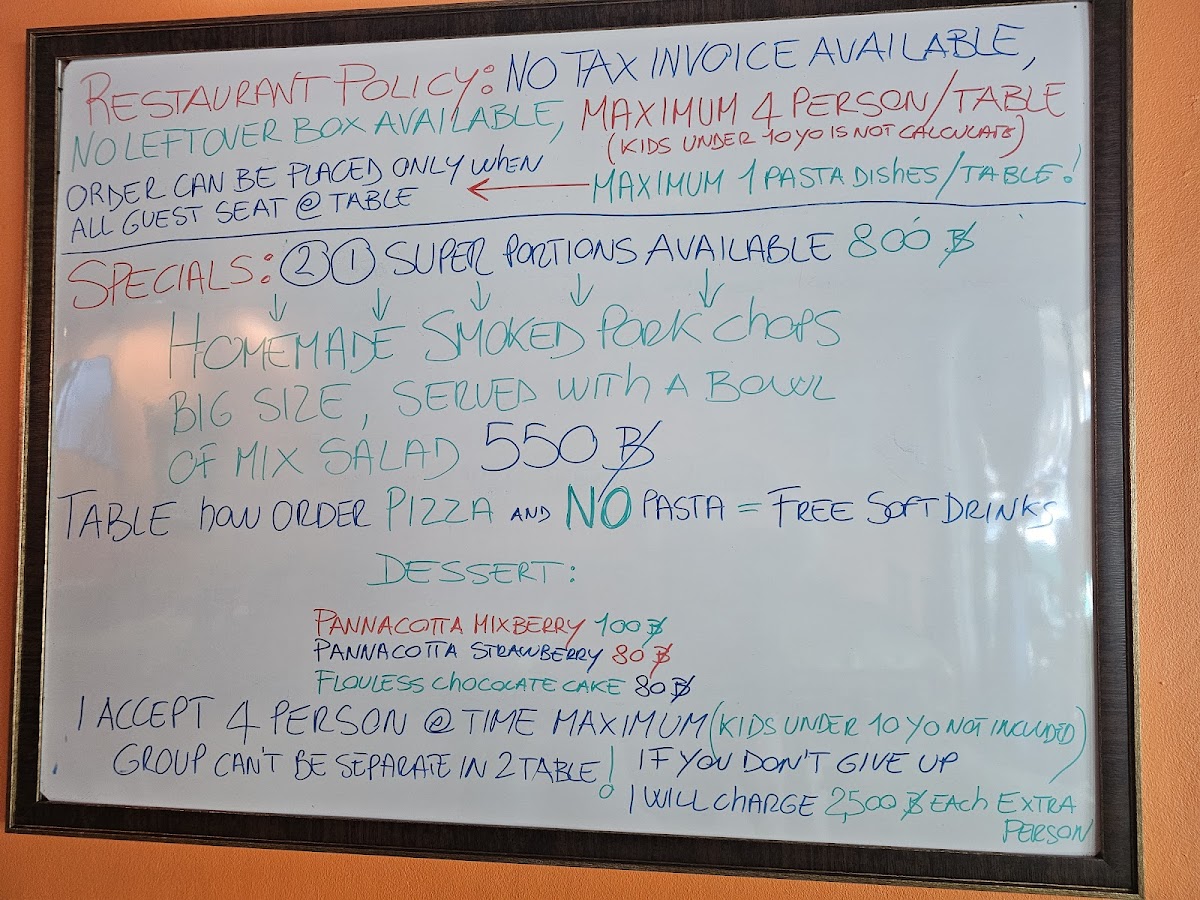 RESTAURANT POLICY: NO TAX INVOICE AVAILABLE,
NO LEFTOVER BOX AVAILABLE, MAXIMUM 4 PERSON/TABLE
(KIDS UNDER 10 YO IS NOT CALCULATE)
ORDER CAN BE PLACED ONLY WHEN
ALL GUEST SEAT @ TABLE
← MAXIMUM 1 PASTA DISHES/TABLE!
SPECIALS: ② ① SUPER PORTIONS AVAILABLE 800 ฿
↓ ↓ ↓ ↓ ↓
HOMEMADE SMOKED PORK CHOPS
BIG SIZE, SERVED WITH A BOWL
OF MIX SALAD 550 ฿
TABLE HOW ORDER PIZZA AND NO PASTA = FREE SOFT DRINKS
DESSERT:
PANNACOTTA MIXBERRY 100 ฿
PANNACOTTA STRAWBERRY 80 ฿
FLOULESS CHOCOLATE CAKE 80 ฿
I ACCEPT 4 PERSON @ TIME MAXIMUM (KIDS UNDER 10 YO NOT INCLUDED)
GROUP CAN'T BE SEPARATE IN 2 TABLE! IF YOU DON'T GIVE UP
I WILL CHARGE 2,500 ฿ EACH EXTRA
PERSON